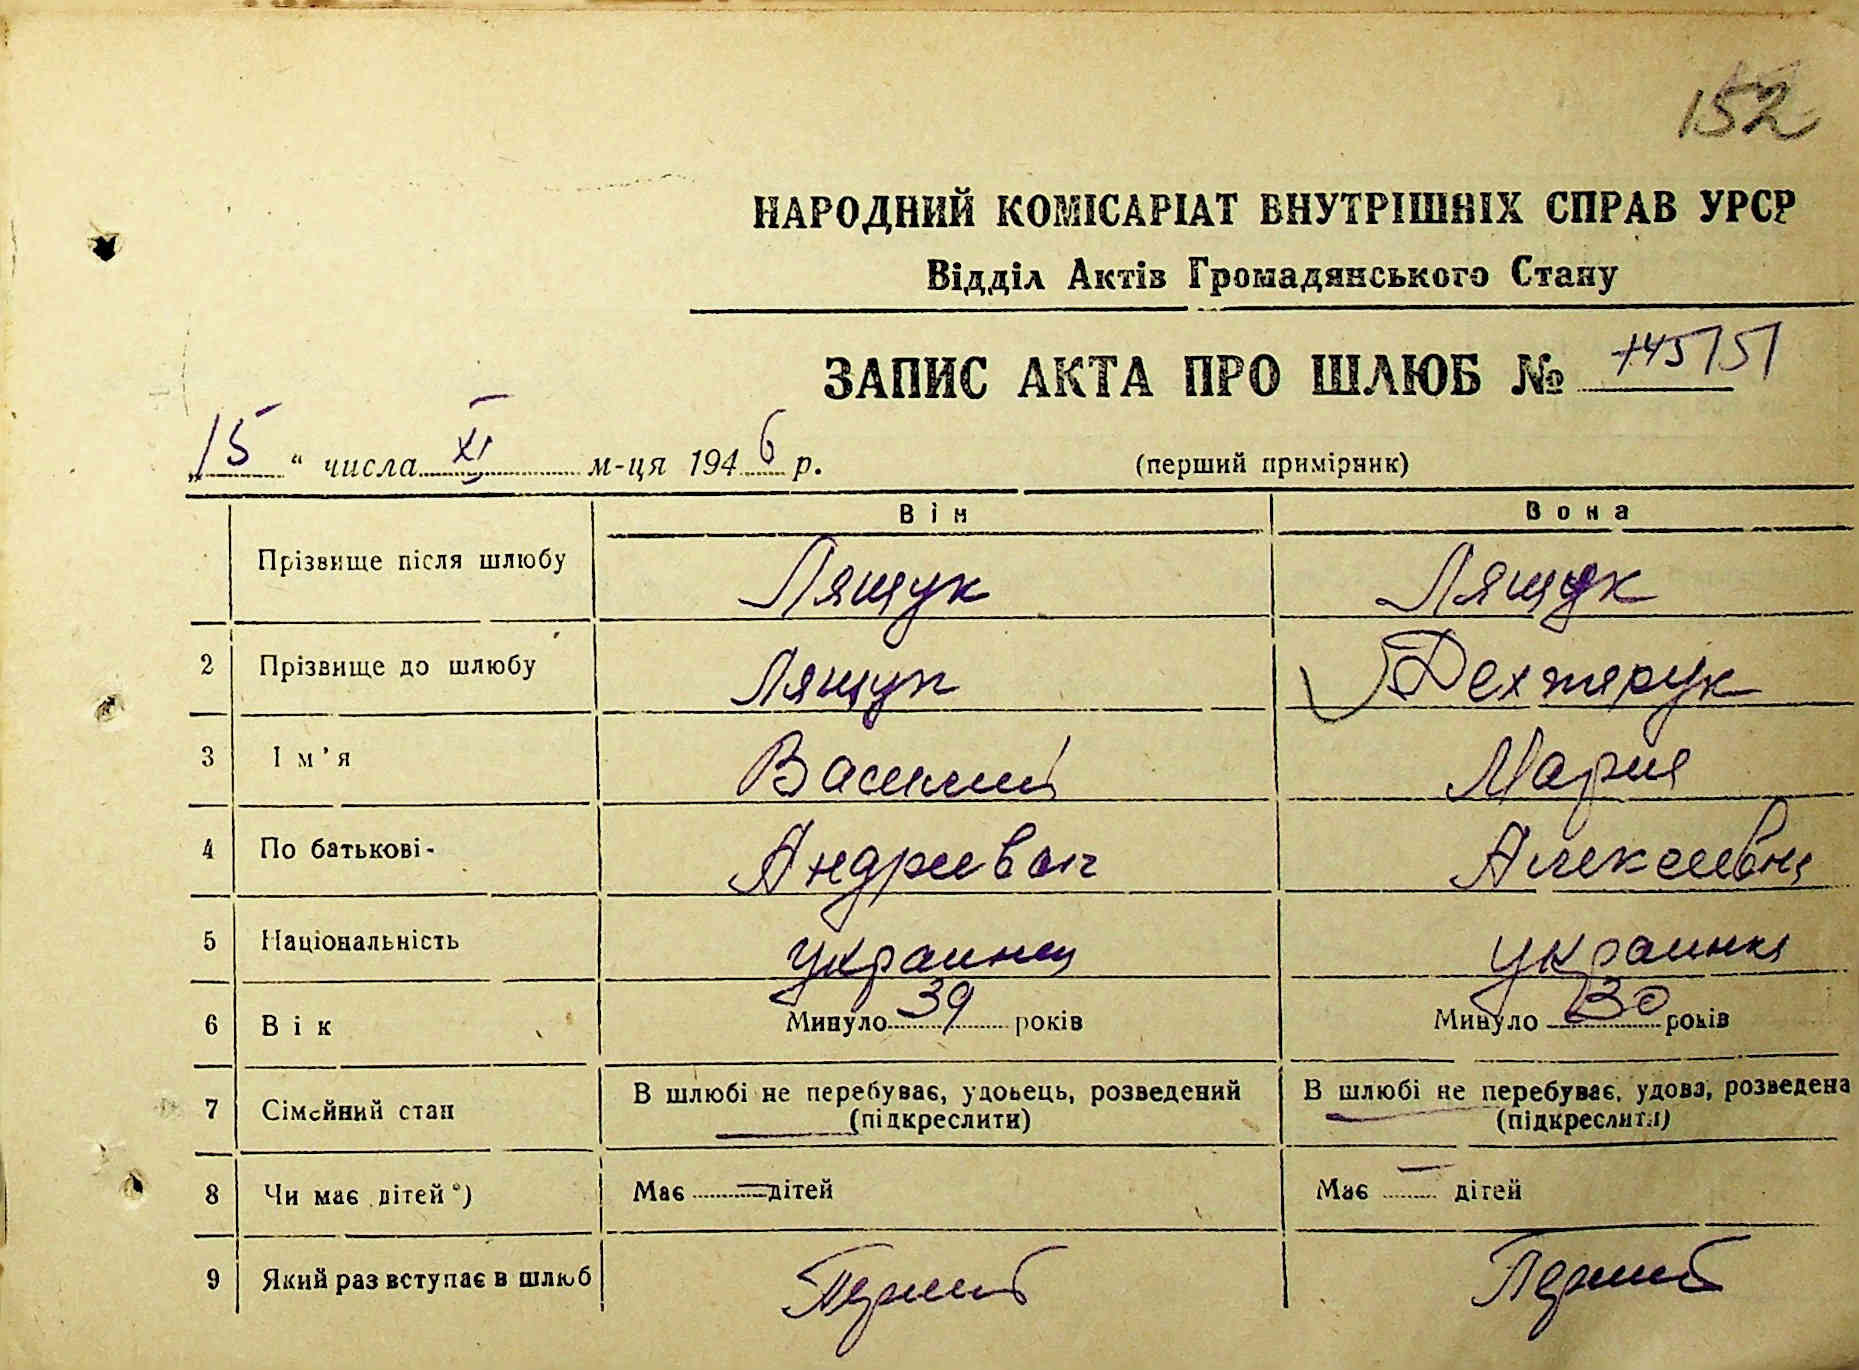 152
НАРОДНИЙ КОМІСАРІАТ ВНУТРІШНІХ СПРАВ УРСР
Відділ Актів Громадянського Стану
ЗАПИС АКТА ПРО ШЛЮБ № 145/51
„15“ числа XI м-ця 1946 р. (перший примірник)
Він Вона
Прізвище після шлюбу Лящук Лящук
2 Прізвище до шлюбу Лящук Дехтярук
3 Ім'я Василий Мария
4 По батькові- Андреевич Алексеевна
5 Національність украинец украинка
6 Вік Минуло 39 років Минуло 30 років
7 Сімейний стан В шлюбі не перебуває, удовець, розведений (підкреслити) В шлюбі не перебуває, удова, розведена (підкреслити)
8 Чи має дітей*) Має — дітей Має — дітей
9 Який раз вступає в шлюб Первый Первый